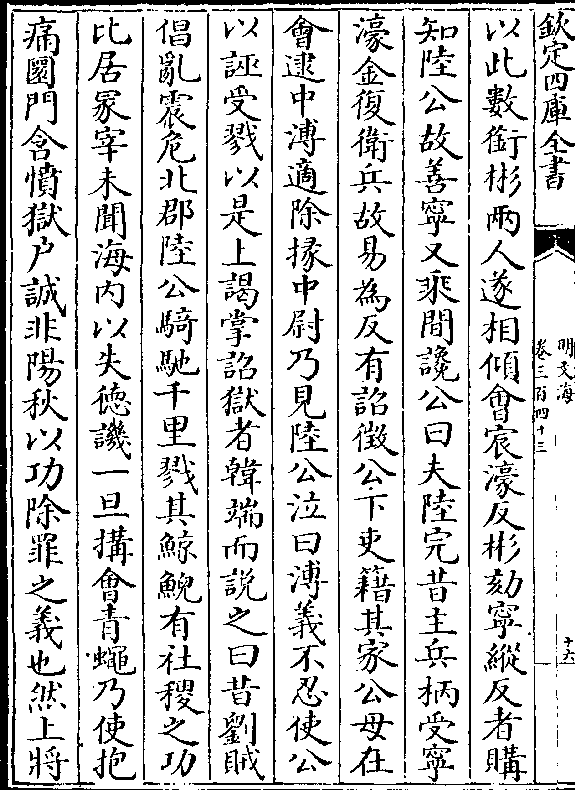 欽定四庫全書
明文海
卷三百四十三
十六
以此數銜彬兩人遂相傾會宸濠反彬劾寧縱反者購
知陸公故善寧又乘間讒公曰夫陸完昔主兵柄受寧
濠金復衛兵故易為反有詔徵公下吏籍其家公母在
會逮中溥適除掾中尉乃見陸公泣曰溥義不忍使公
以誣受戮以是上謁掌詔獄者韓端而説之曰昔劉賊
倡亂震危北郡陸公騎馳千里戮其鯨鯢有社稷之功
比居冢宰未聞海内以失徳譏一旦搆會青蠅乃使抱
痛圜門含憤獄户誠非陽秋以功除罪之義也然上將